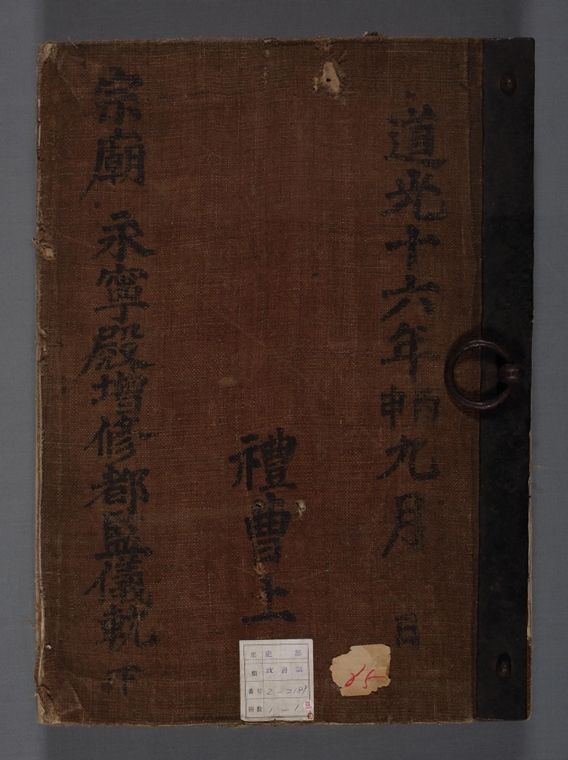 道光十六年丙申九月 日
禮曹上
宗廟 永寧殿增修都監儀軌
史部
政書類
番号 2-2189
冊数 1-1
85